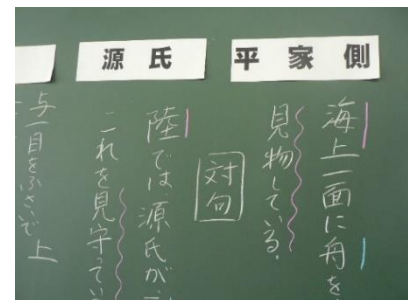 平家側
海上一面に舟を
見物している。
対句
源氏
陸では源氏が
これを見守ってい
与一目をふさいで上